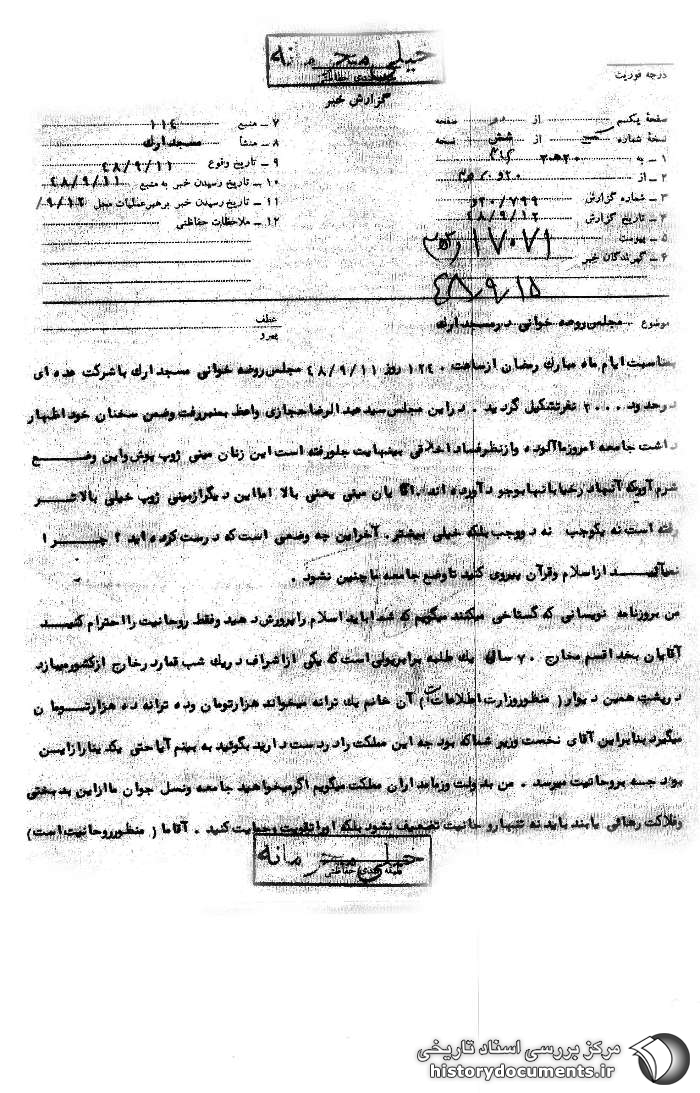 خیلی محرمانه
گزارش خبر
درجه فوریت
صفحهٔ یکم از صفحه
نسخهٔ شماره از شش نسخه
۱ ـ به
۲ ـ از ۲۰
۳ ـ شماره گزارش ۲۰/۷۹۹
۴ ـ تاریخ گزارش ۴۸/۹/۱۲
۵ ـ پیوست
۶ ـ گیرندگان خبر
۱۷۰۷۱
۴۸/۹/۱۵
۷ ـ منبع ۱۱۴
۸ ـ منشأ مسجد ارك
۹ ـ تاریخ وقوع ۴۸/۹/۱۱
۱۰ ـ تاریخ رسیدن خبر به منبع ۴۸/۹/۱۱
۱۱ ـ تاریخ رسیدن خبر برهبر عملیات محل ۹/۱۲/
۱۲ ـ ملاحظات حفاظتی
موضوع مجلس روضه خوانی در مسجد ارك
عطف
پیرو
بمناسبت ایام ماه مبارك رمضان ازساعت روز ۴۸/۹/۱۱ مجلس روضه خوانی مسجد ارك با شرکت عده ای
درحدود ۲۰۰۰ نفرتشکیل گردید . در این مجلس سید عبدالرضا حجازی واعظ بمنبر رفت وضمن سخنان خود اظهار
داشت جامعه امروز ما آلوده و ازنظر فساد اخلاقی به بینهایت جلو رفته است این زنان مینی ژوپ پوش و این وضع
شرم آوریکه آنها در خیابانها بوجود آورده اند . آقایان مینی یعنی بالا اما این دیگر ازمینی ژوپ خیلی بالاتر
رفته است نه یکوجب نه دو وجب بلکه خیلی بیشتر . آخر این چه وضعی است که درست کرده اید ؟ چرا
نمیآئید ازاسلام وقرآن پیروی کنید تا وضع جامعه ما چنین نشود .
من بروزنامه نویسانی که گستاخی میکنند میگویم که شما باید اسلام را پرورش دهید وفقط روحانیت را احترام کنید
آقایان بخدا قسم مخارج ۷۰ سال یك طلبه برابر پولی است که یکی ازاشراف دریك شب قمار در خارج ازکشور میبازد
درپشت همین دیوار ( منظور وزارت اطلاعات ) آن خانم یك ترانه میخواند هزارتومان وده ترانه ده هزارتومان
میگیرد بنابراین آقای نخست وزیر شما که بودجه این مملکت را دردست دارید بگوئید به بینم آیا حتی یکدینار ازاین
بودجه بروحانیت میرسد . من بدولت و زمامداران مملکت میگویم اگر میخواهید جامعه ونسل جوان ما ازاین بدبختی
وفلاکت رهائی یابند باید نه تنها روحانیت تضعیف نشود بلکه اورا تقویت وحمایت کنید . آقاما ( منظور روحانیت است)
خیلی محرمانه
طبقه بندی حفاظتی
مرکز بررسی اسناد تاریخی
historydocuments.ir